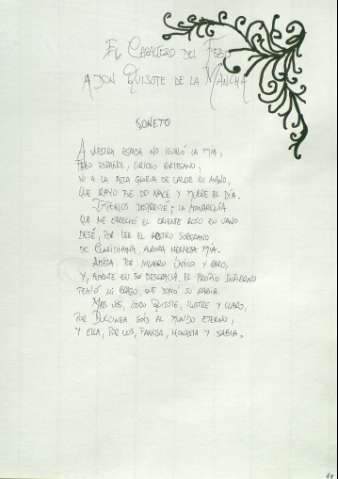 El Caballero del Febo
A Don Quijote de la Mancha
SONETO
A vuestra espada no igualó la mía,
Febo español, curioso cortesano,
ni a la alta gloria de valor mi mano,
que rayo fue do nace y muere el día.
Imperios desprecié; la monarquía
que me ofreció el Oriente rojo en vano
dejé, por ver el rostro soberano
de Claridiana, aurora hermosa mía.
Améla por milagro único y raro,
y, ausente en su desgracia, el propio infierno
temió mi brazo, que domó su rabia.
Mas vos, godo Quijote, ilustre y claro,
por Dulcinea sois al mundo eterno,
y ella, por vos, famosa, honesta y sabia.